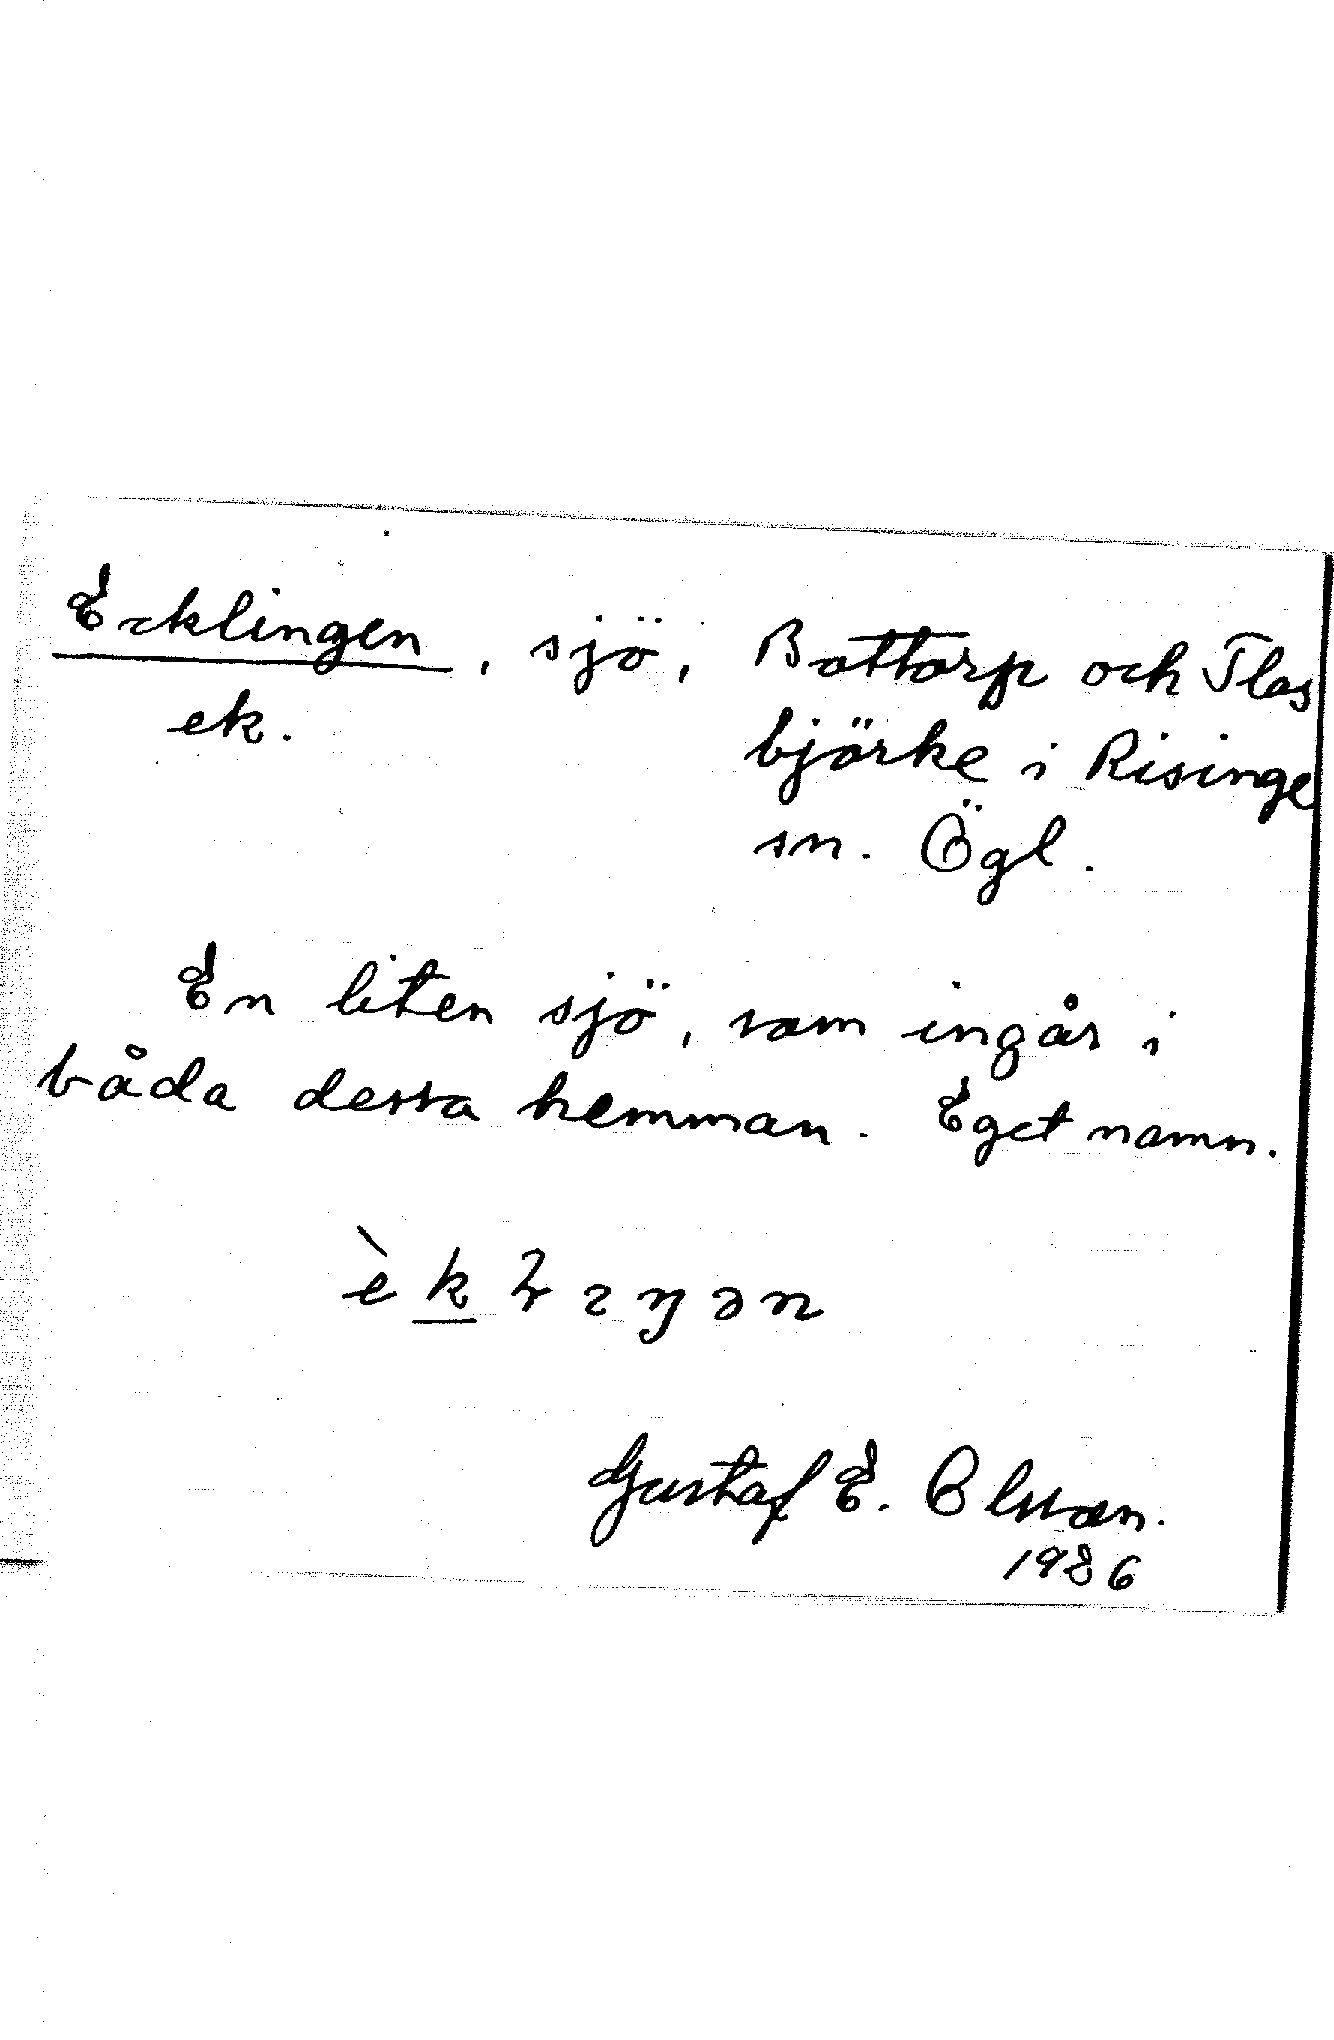 Ecklingen, sjö, Bottorp och Flas
ek. björke i Risinge
sn. Ögl.
En liten sjö, som ingår i
båda dessa hemman. Eget namn.
Gustaf E. Olsson.
1986